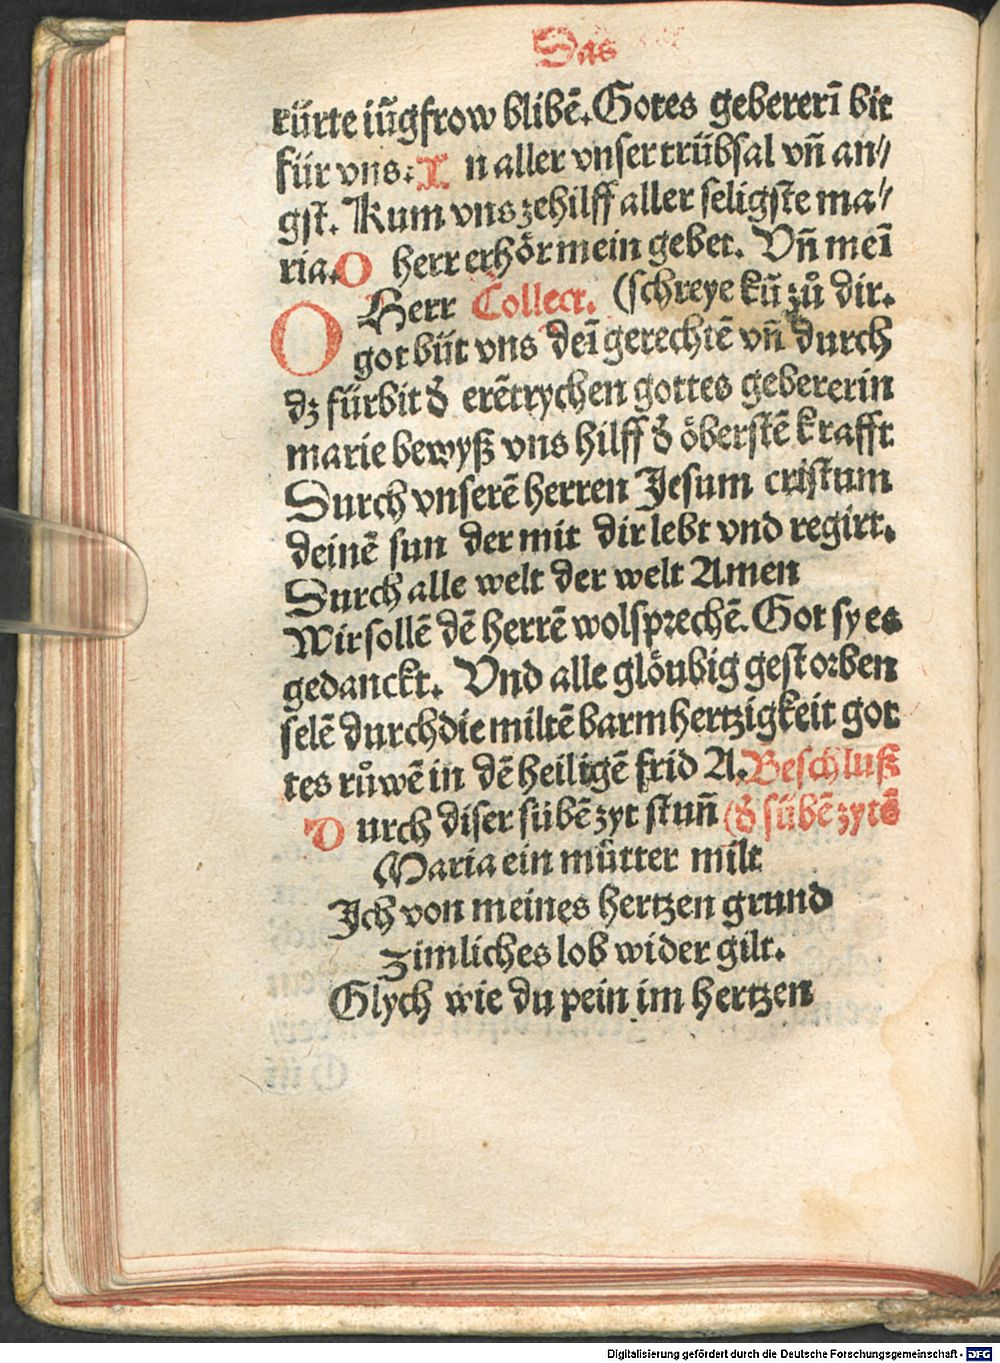 Das
rürte iũgfrow blibẽ. Gotes gebererĩ bit
für vns: In aller vnser trübsal vñ an⸗
gst. Kum vns zehilff aller seligste ma⸗
ria. O herr erhör mein gebet. Vñ meĩ
Herr Collect. (schreye kũ zů dir.
O got büt vns deĩ gerechtẽ vñ durch
dz fürbit d̕ erẽtrychen gottes gebererin
marie bewyß vns hilff d̕ öberstẽ krafft
Durch vnserẽ herren Jesum cristum
deinẽ sun der mit dir lebt vnd regirt.
Durch alle welt der welt Amen
Wir sollẽ dẽ herrẽ wolsprechẽ. Got sy es
gedanckt. Vnd alle glöubig gestorben
selẽ durch die miltẽ barmhertzigkeit got
tes růwẽ in dẽ heiligẽ frid A. Beschluß
Durch diser sübẽ zyt stuñ (d̕ sübẽ zytẽ
Maria ein mütter milt
Ich von meines hertzen grund
zimliches lob wider gilt.
Glych wie du pein im hertzen
Digitalisierung gefördert durch die Deutsche Forschungsgemeinschaft - DFG